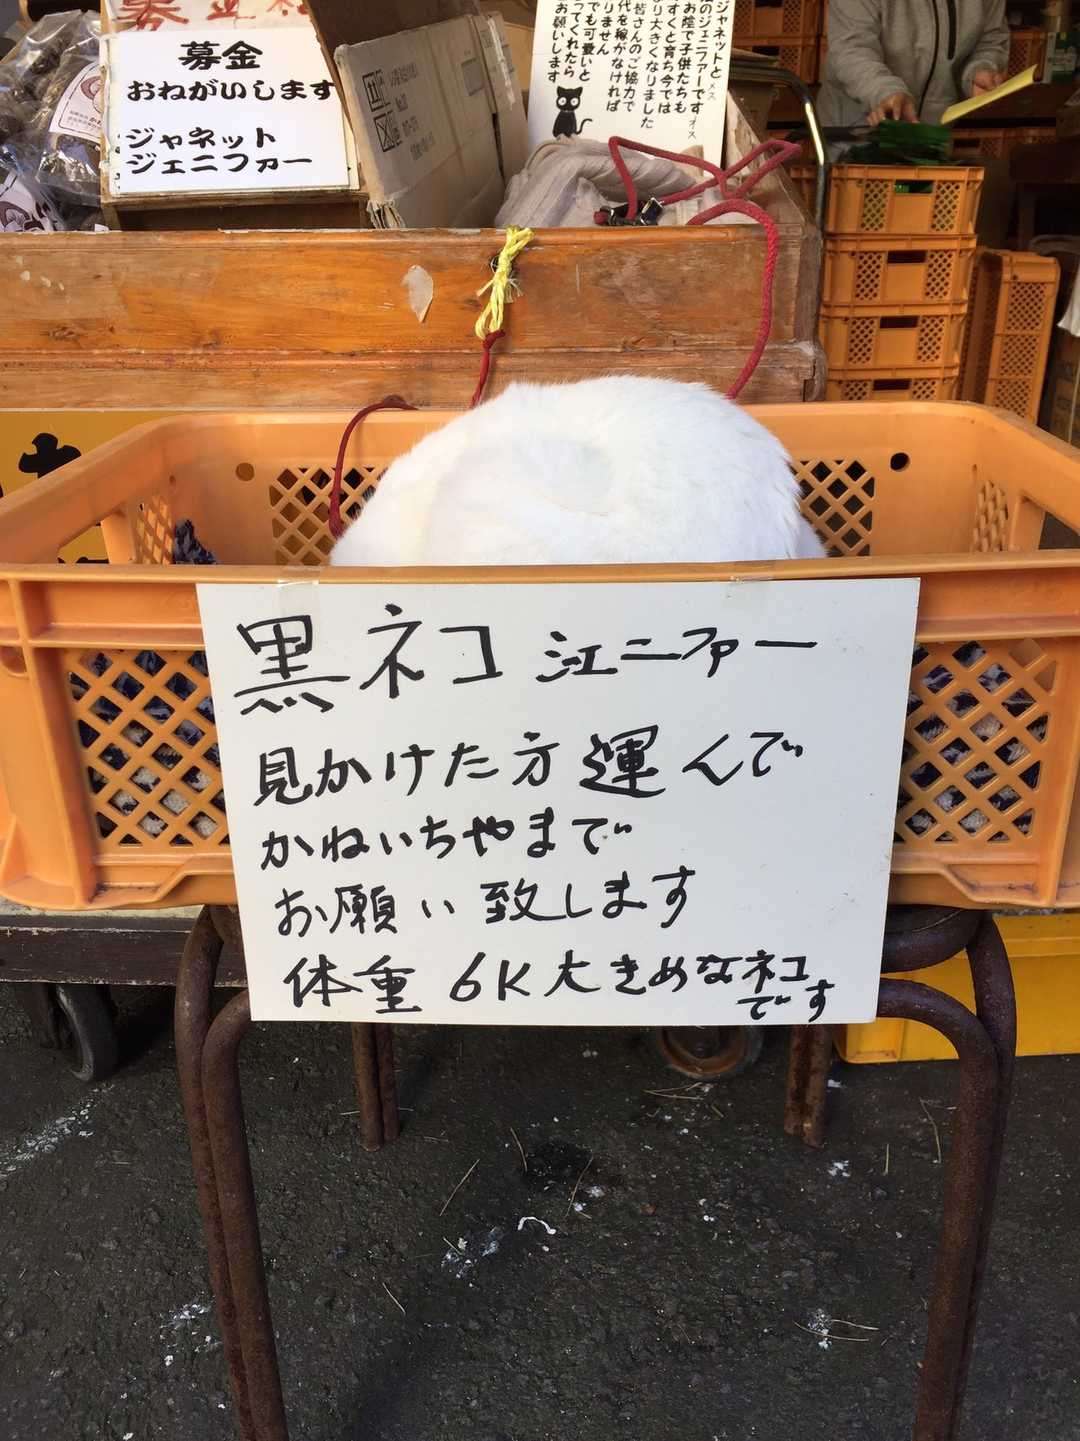 募金
おねがいします
ジャネット
ジェニファー
のジェニファーです
お陰で子供たちも
すくすくと育ち今では
より大きくなりました
皆さんのご協力で
代を稼がなければ
りません
でも可愛いと
ってくれたら
お願いします
メス
オス
黒ネコ 江ニファー
見かけた方運んで
かねいちやまで
お願い致します
体重 6K大きめなネコ
です